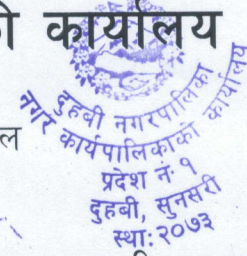 कार्यालय
दुहबी नगरपालिका
नगर कार्यपालिकाको कार्यालय
प्रदेश नं. १
दुहबी, सुनसरी
स्था: २०७३